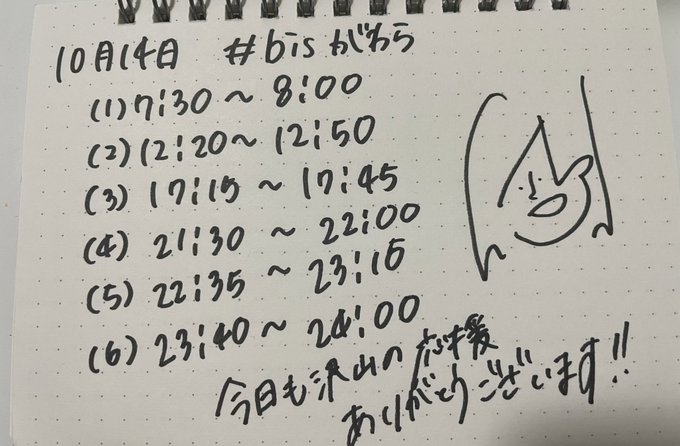 10月14日 #bisがわら
(1) 7:30〜8:00
(2) 12:20〜12:50
(3) 17:15〜17:45
(4) 21:30〜22:00
(5) 22:35〜23:15
(6) 23:40〜24:00
今日も沢山の応援
ありがとうございます!!